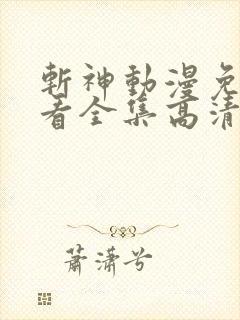 斬神動漫免
看全集高清
蕭瀟兮